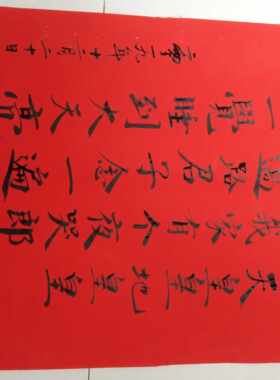 天皇皇地皇皇
我家有个夜哭郎
過路君子念一遍
一覺睡到大天亮
二零一九年十二月二十日